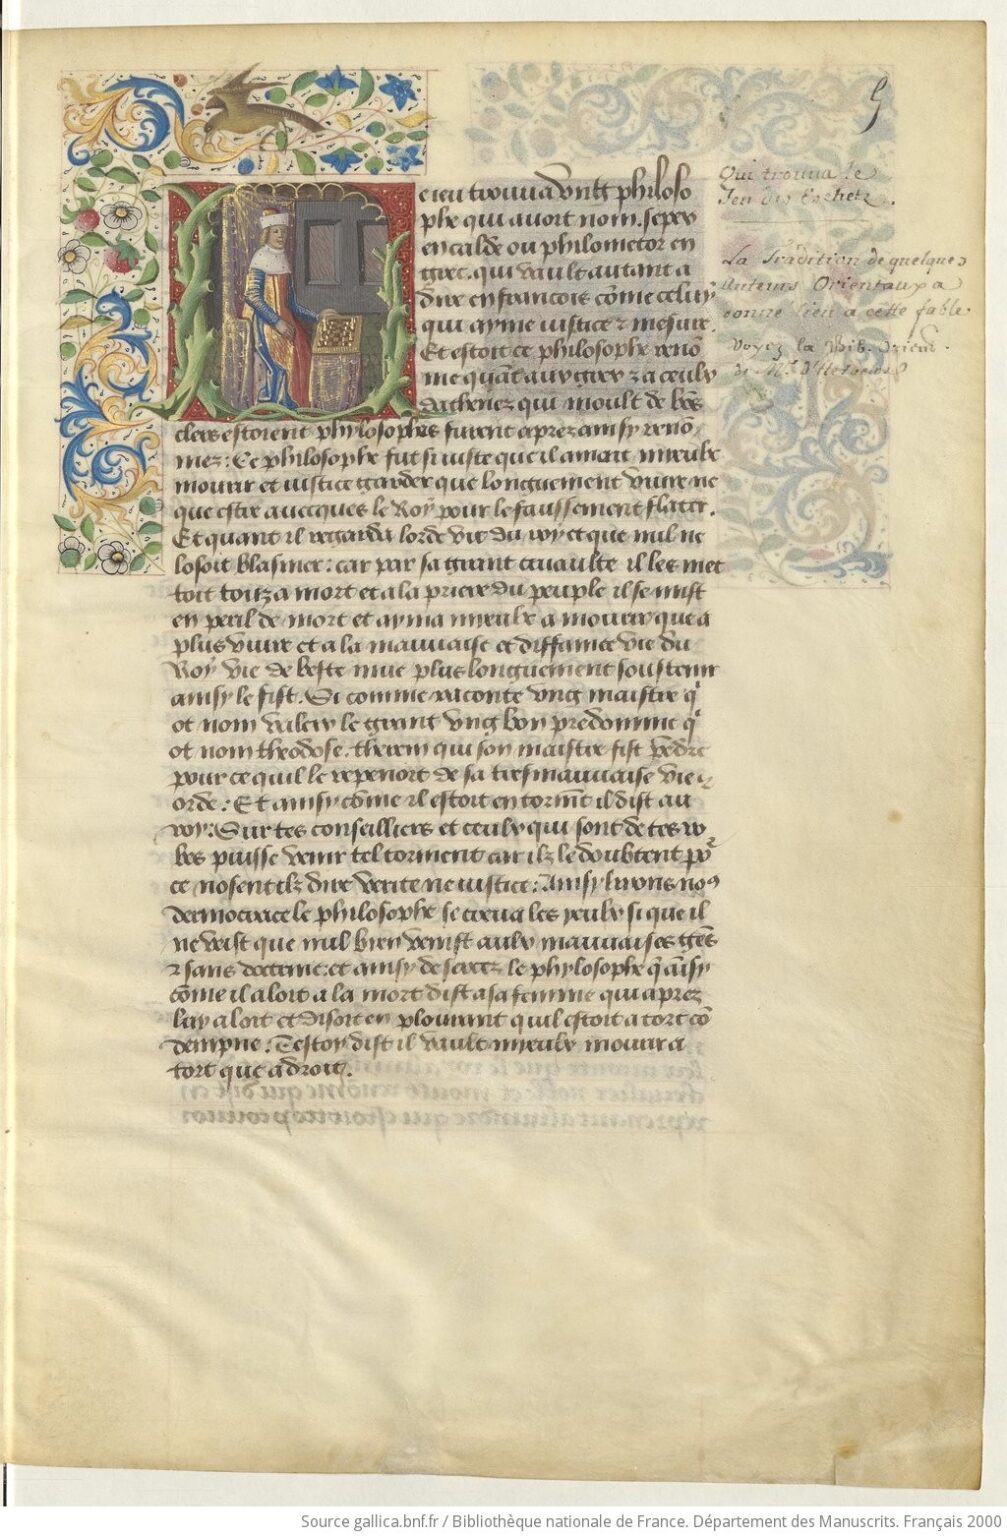 5
Qui trouva le
Jeu des Eschetz.
La Tradition de quelques
Auteurs Orientaux a
donné lieu a cette fable.
Voyez la Bib. Orient.
de Mr. d'Herbelot
e ieu trouva ung philoso
phe qui avoit nom. sexes
en calde ou philometor en
grec. qui vault autant a
dire en francois cõme celuy
qui ayme iustice ⁊ mesure.
Et estoit ce philosophe renõ
me quãt aux grex ⁊ a ceulx
dathenez qui moult de bõs
clers estoient phylosophes furent aprez ainsy reno
mez: Ce philosophe fut si iuste que il amait mieulx
mourir et iustice garder que longuement vivre ne
que estre avecques le Roy pour le faussement flater.
Et quant il regarda lorde vie du roy et que nul ne
losoit blasmer: car par sa grant cruaulte il les met
toit toutz a mort et a la priere du peuple il se mist
en peril de mort et ayma mieulx a mourir que a
plus vivre et a la mauvaise et diffamee vie du
Roy vie de beste mue plus longuement soustenir
ainsy le fist. Si comme raconte ung maistre q̃
ot nom valere le grant ung bon predomme q̃
ot nom theodose. therem qui son maistre fist pẽdre
pour ce quil le reprenoit de sa tresmauvaise vie
orde: Et ainsy cõme il estoit en tormẽt il dist au
roy: Sur tes conseilliers et ceulx qui sont de tes ro
bes puisse venir tel torment car ilz le doubtent po⁹
ce nosent ilz dire verite ne iustice: Ainsy lisons noꝰ
democrace le philosophe se creva les yeulx si que il
ne veist que nul bien venist aulx mauvaises gẽs
⁊ sans doctrine: et ainsy de sexez le phylosophe q̃ aĩsy
cõme il aloit a la mort dist a sa femme qui aprez
luy aloit et disoit en plourant quil estoit a tort cõ
dempne: Testoy dist il vault mieulx mourir a
tort que a droit.
Source gallica.bnf.fr / Bibliothèque nationale de France. Département des Manuscrits. Français 2000